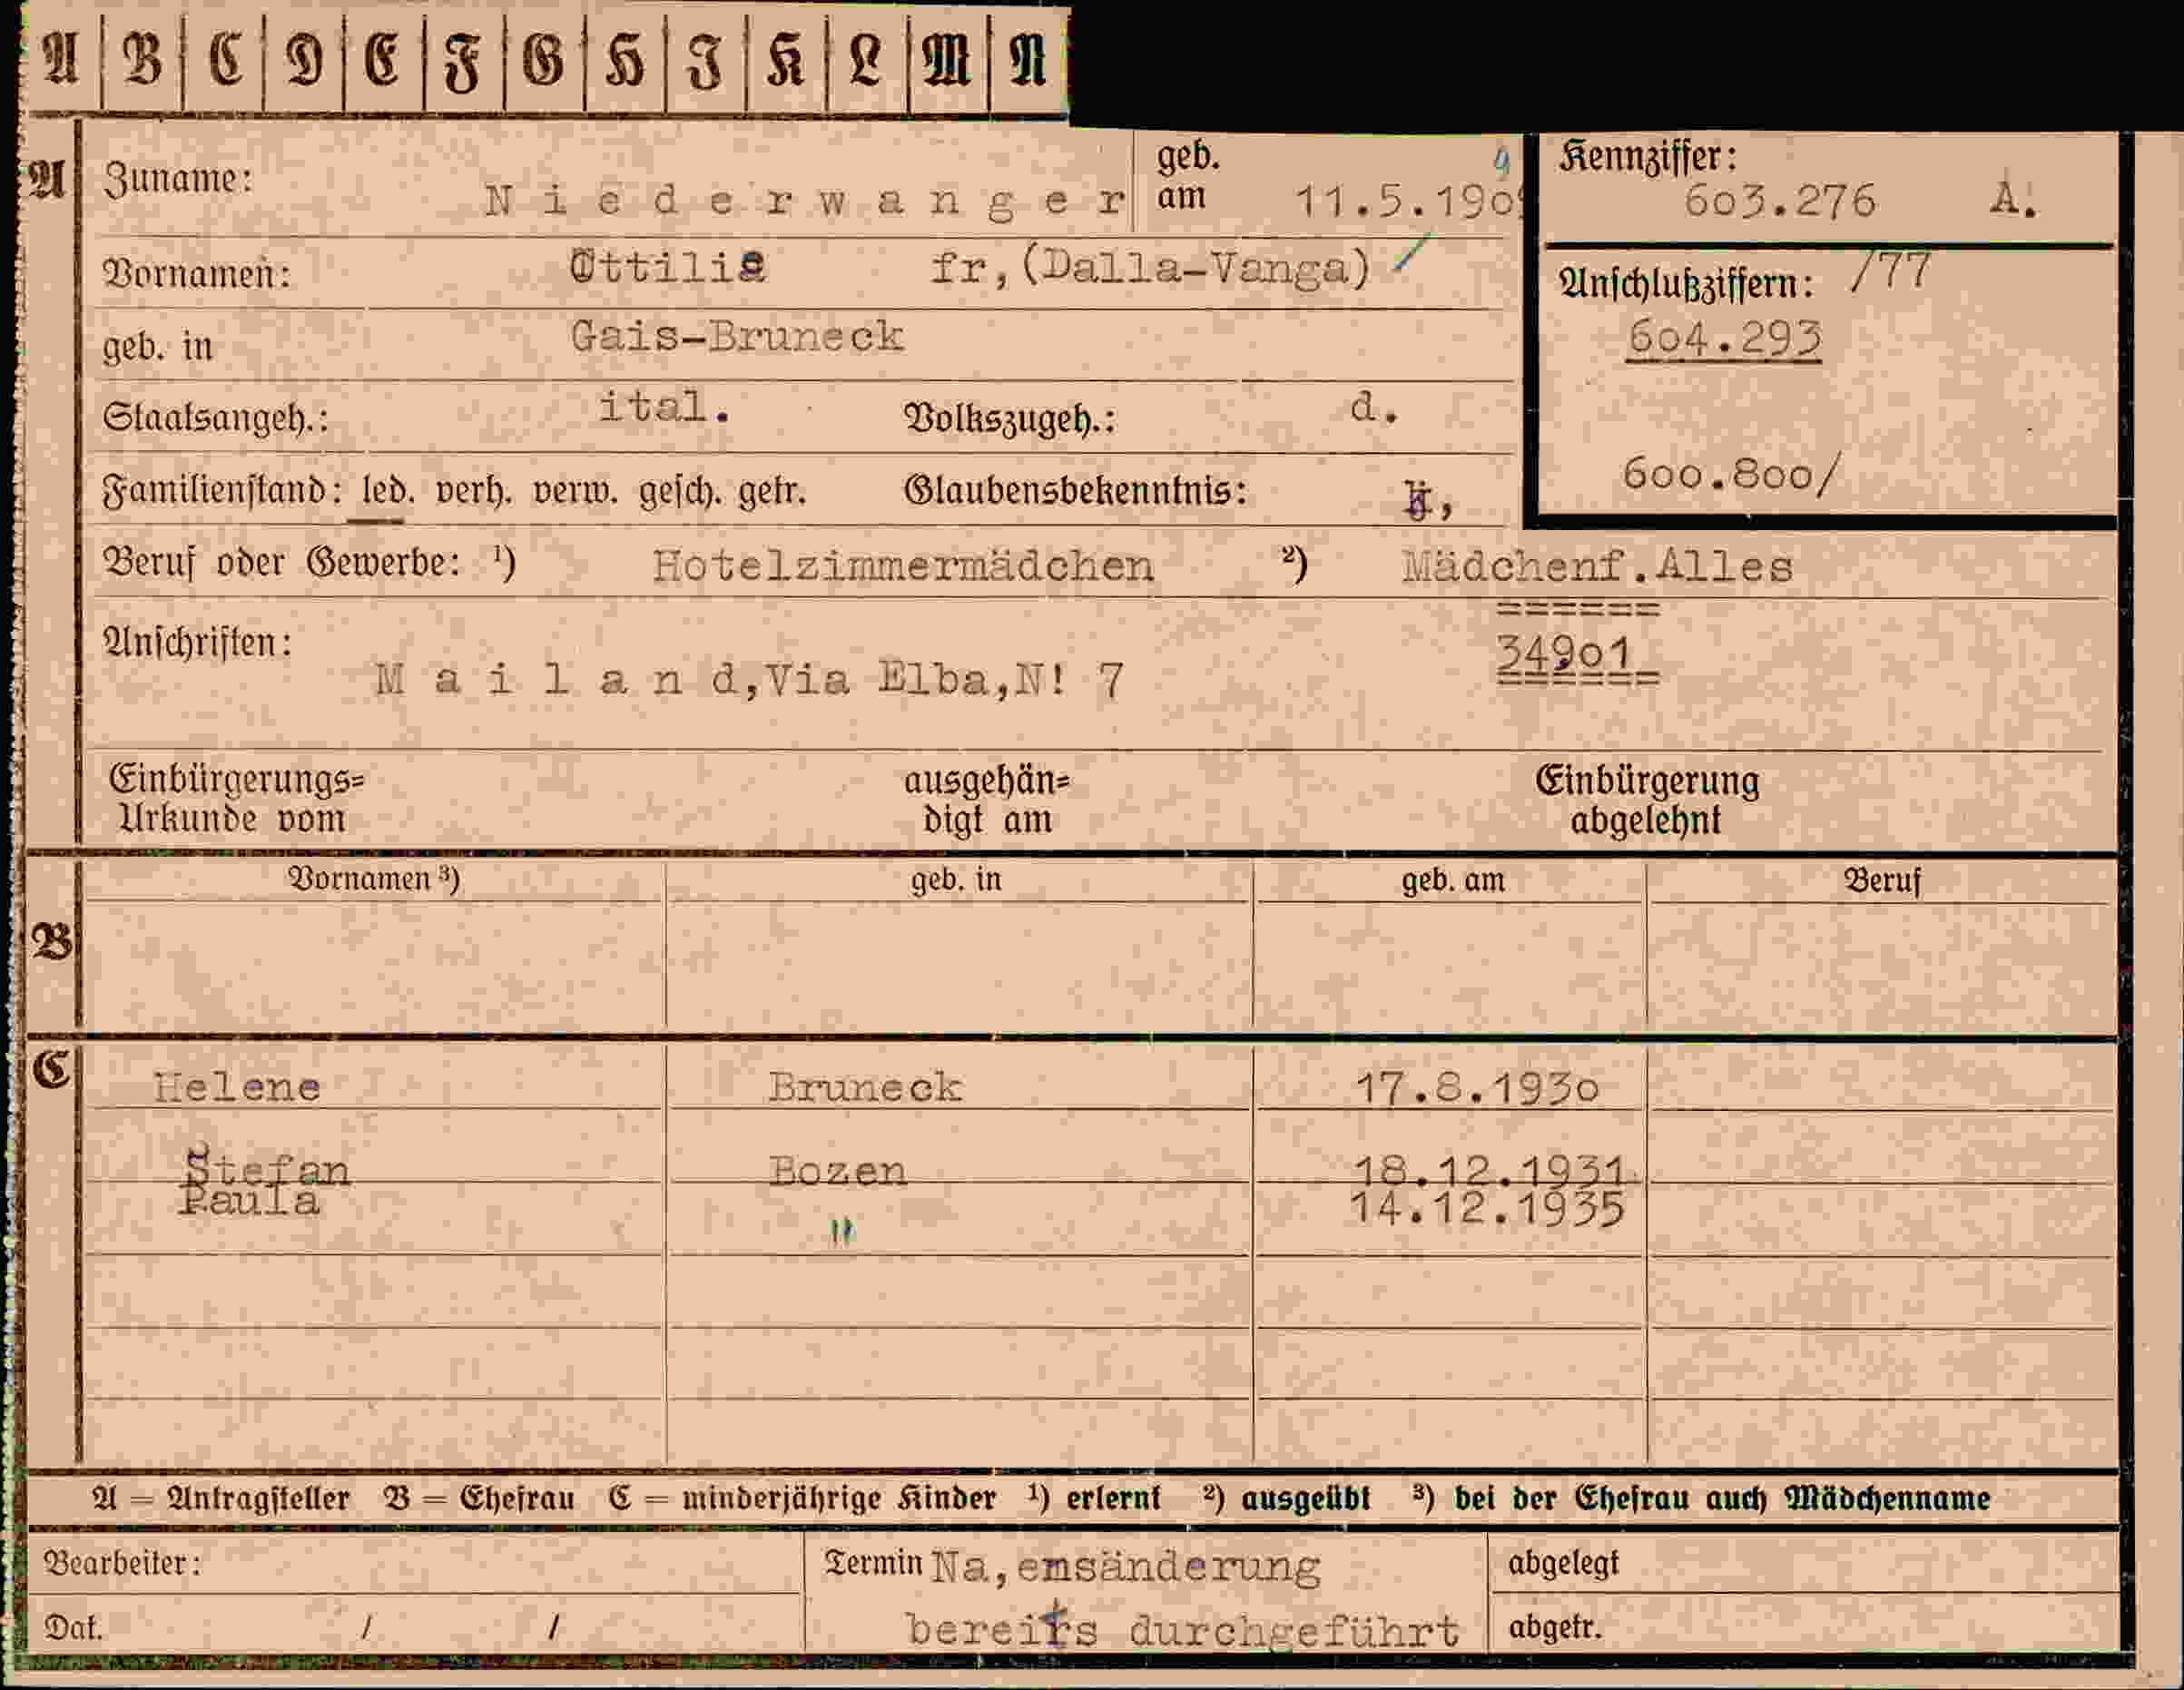 A B C D E F G H I K L M N
A
Zuname: Niederwanger
geb. am 11.5.190 9
Kennziffer: 603.276 A.
Vornamen: Ottilie fr,(Dalla-Vanga) /
Anschlußziffern: /77
604.293
600.800/
geb. in Gais-Bruneck
Staatsangeh.: ital. Volkszugeh.: d.
Familienstand: led. verh. verw. gesch. getr. Glaubensbekenntnis:
Beruf oder Gewerbe: ¹) Hotelzimmermädchen ²) Mädchenf.Alles
======
Anschriften: Mailand,Via Elba,N! 7
34901
======
Einbürgerungs=
Urkunde vom
ausgehän=
digt am
Einbürgerung
abgelehnt
Vornamen ³) geb. in geb. am Beruf
B
C
Helene Bruneck 17.8.1930
Stefan Bozen 18.12.1931
Paula " 14.12.1935
A = Antragsteller B = Ehefrau C = minderjährige Kinder ¹) erlernt ²) ausgeübt ³) bei der Ehefrau auch Mädchenname
Bearbeiter:
Termin Na,emsänderung
abgelegt
Dat. / /
bereits durchgeführt
abgetr.